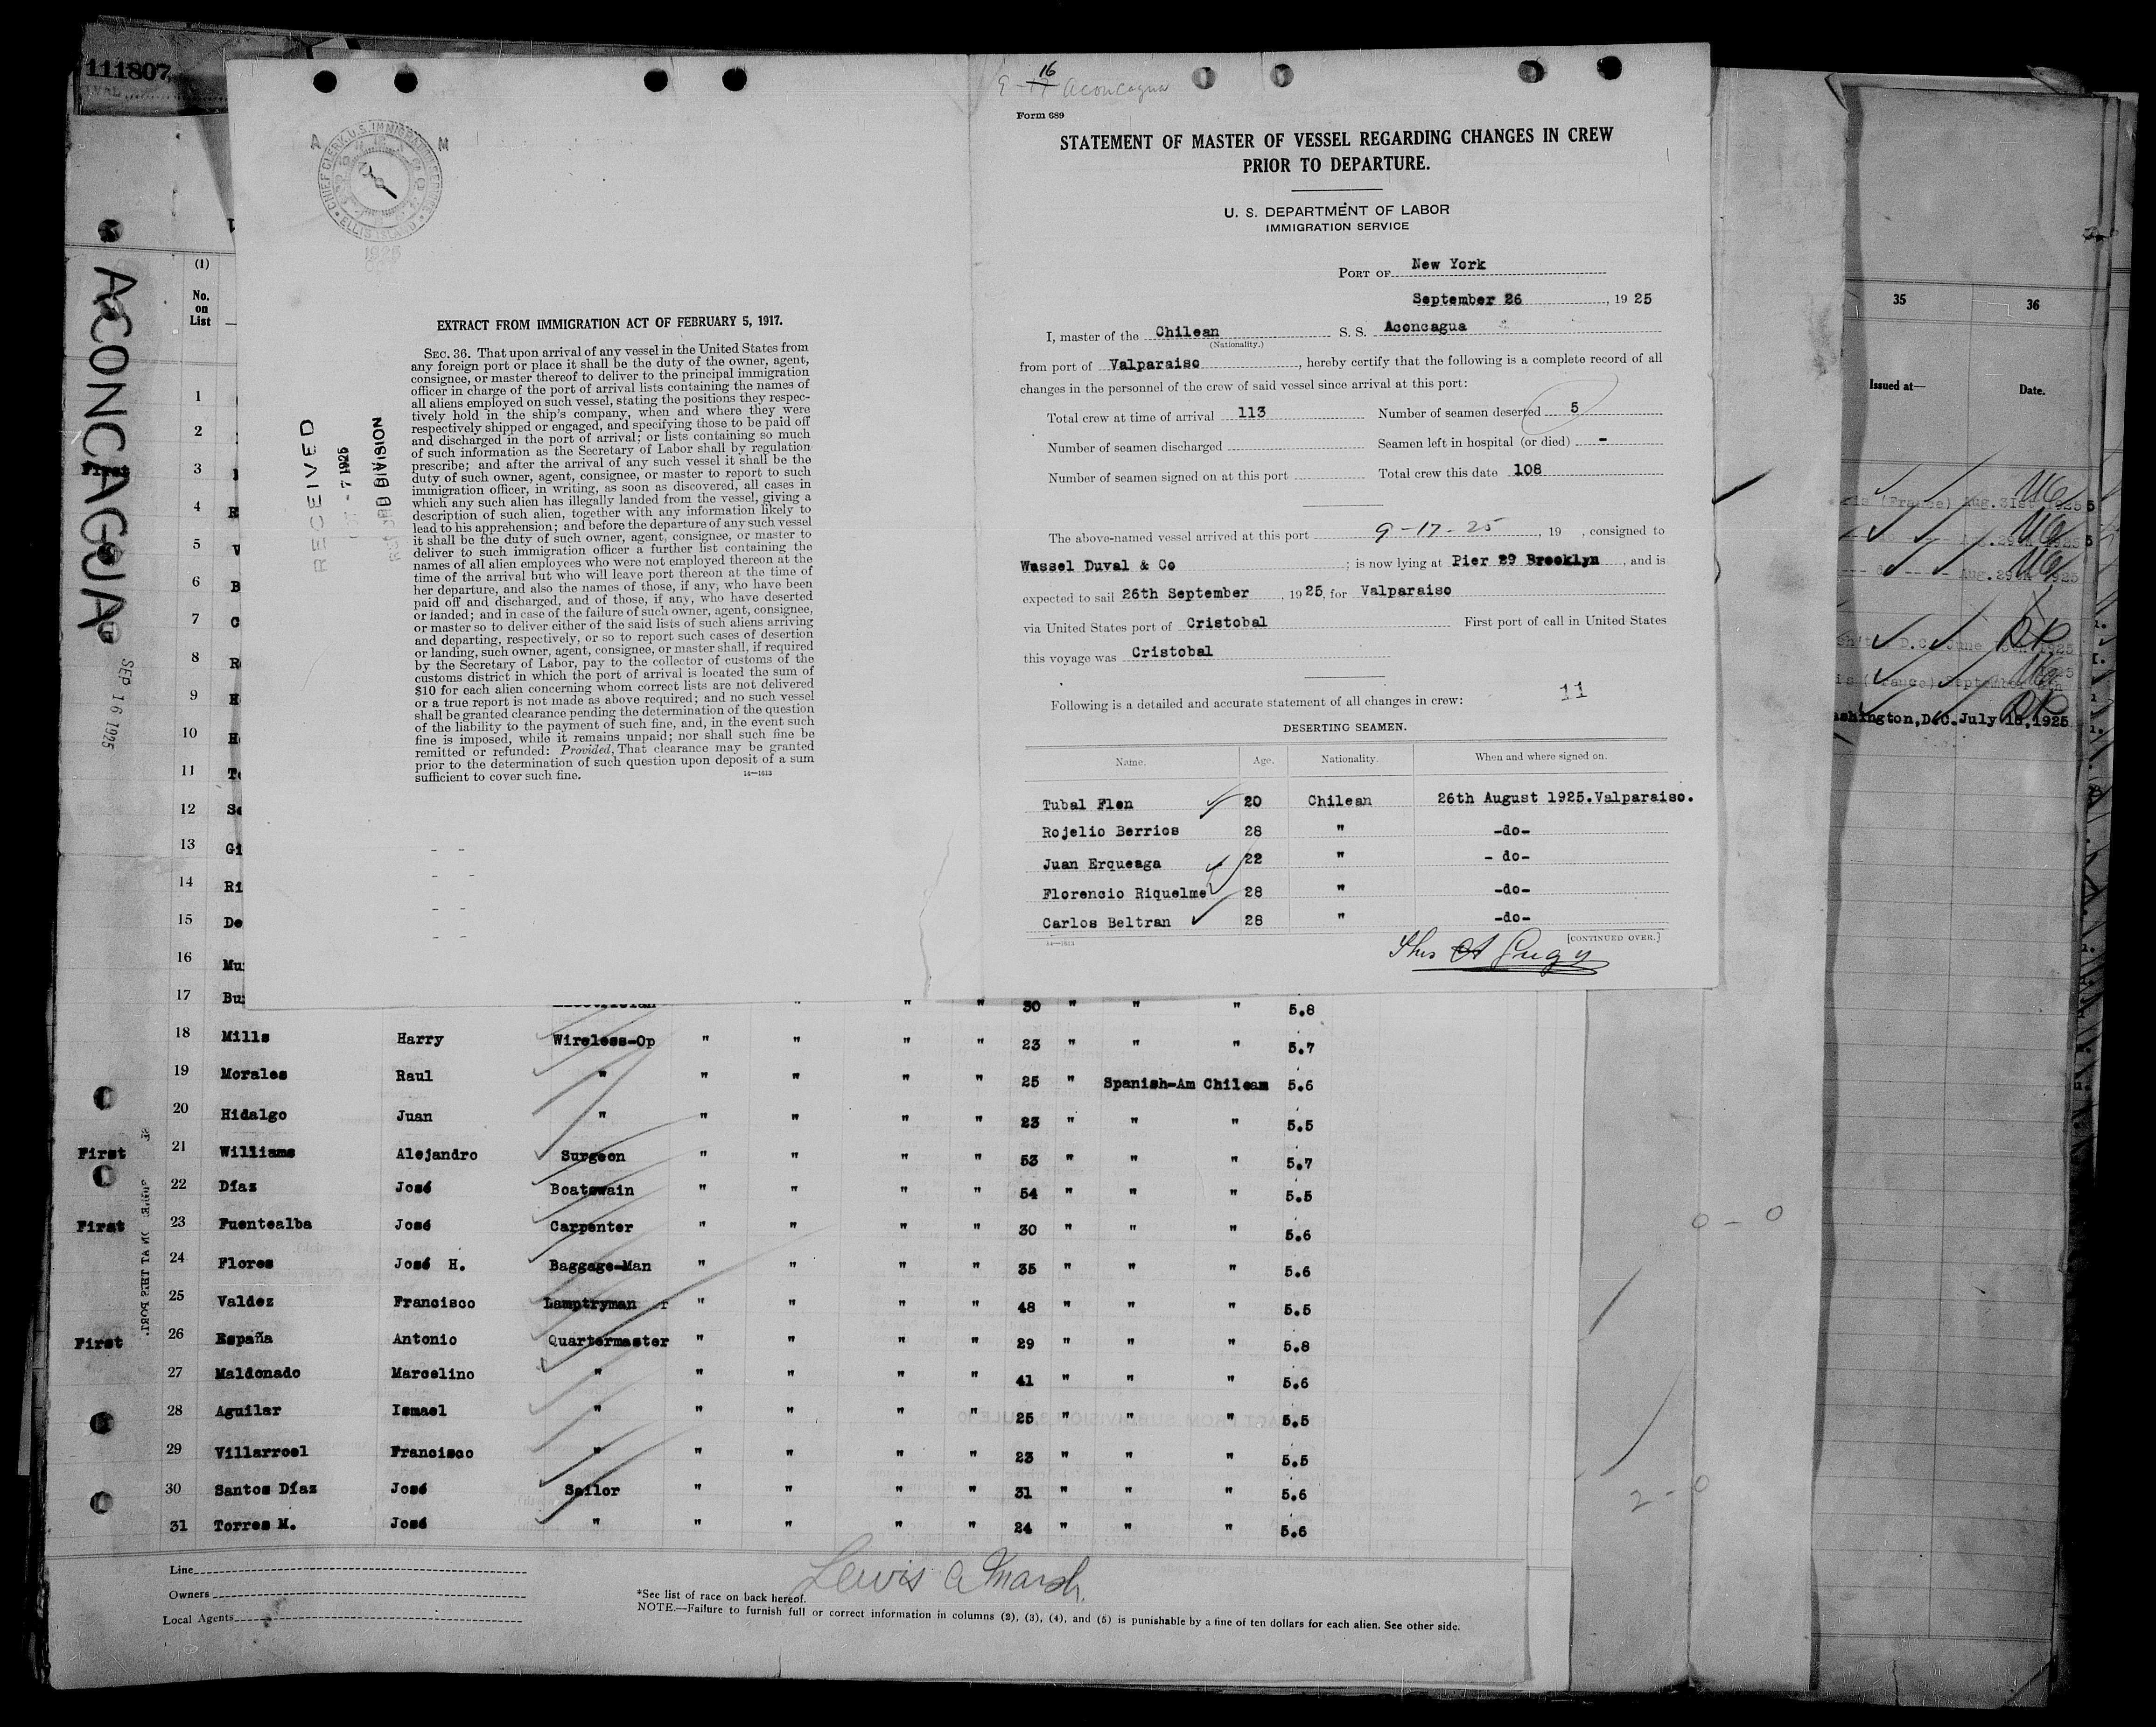 111807
ACONCAGUA
SEP 16 1925
A M
CHIEF CLERK, U.S. IMMIGRATION SERVICE
ELLIS ISLAND
1925
RECEIVED
- 7 1925
RECORD DIVISION
EXTRACT FROM IMMIGRATION ACT OF FEBRUARY 5, 1917.
SEC. 36. That upon arrival of any vessel in the United States from
any foreign port or place it shall be the duty of the owner, agent,
consignee, or master thereof to deliver to the principal immigration
officer in charge of the port of arrival lists containing the names of
all aliens employed on such vessel, stating the positions they respec-
tively hold in the ship's company, when and where they were
respectively shipped or engaged, and specifying those to be paid off
and discharged in the port of arrival; or lists containing so much
of such information as the Secretary of Labor shall by regulation
prescribe; and after the arrival of any such vessel it shall be the
duty of such owner, agent, consignee, or master to report to such
immigration officer, in writing, as soon as discovered, all cases in
which any such alien has illegally landed from the vessel, giving a
description of such alien, together with any information likely to
lead to his apprehension; and before the departure of any such vessel
it shall be the duty of such owner, agent, consignee, or master to
deliver to such immigration officer a further list containing the
names of all alien employees who were not employed thereon at the
time of the arrival but who will leave port thereon at the time of
her departure, and also the names of those, if any, who have been
paid off and discharged, and of those, if any, who have deserted
or landed; and in case of the failure of such owner, agent, consignee,
or master so to deliver either of the said lists of such aliens arriving
and departing, respectively, or so to report such cases of desertion
or landing, such owner, agent, consignee, or master shall, if required
by the Secretary of Labor, pay to the collector of customs of the
customs district in which the port of arrival is located the sum of
$10 for each alien concerning whom correct lists are not delivered
or a true report is not made as above required; and no such vessel
shall be granted clearance pending the determination of the question
of the liability to the payment of such fine, and, in the event such
fine is imposed, while it remains unpaid; nor shall such fine be
remitted or refunded: Provided, That clearance may be granted
prior to the determination of such question upon deposit of a sum
sufficient to cover such fine. 14—1613
16
9-17 Aconcagua
Form 689
STATEMENT OF MASTER OF VESSEL REGARDING CHANGES IN CREW
PRIOR TO DEPARTURE.
U. S. DEPARTMENT OF LABOR
IMMIGRATION SERVICE
PORT OF New York
September 26, 1925
I, master of the Chilean S. S. Aconcagua
(Nationality.)
from port of Valparaiso, hereby certify that the following is a complete record of all
changes in the personnel of the crew of said vessel since arrival at this port:
Total crew at time of arrival 113 Number of seamen deserted 5
Number of seamen discharged Seamen left in hospital (or died) -
Number of seamen signed on at this port Total crew this date 108
The above-named vessel arrived at this port 9-17-25, 19 , consigned to
Wessel Duval & Co; is now lying at Pier 29 Brooklyn, and is
expected to sail 26th September, 1925, for Valparaiso
via United States port of Cristobal First port of call in United States
this voyage was Cristobal
11
Following is a detailed and accurate statement of all changes in crew:
DESERTING SEAMEN.
Name. Age. Nationality. When and where signed on.
Tubal Flen 20 Chilean 26th August 1925.Valparaiso.
Rojelio Berrios 28 " -do-
Juan Erqueaga 22 " - do-
Florencio Riquelme 28 " -do-
Carlos Beltran 28 " -do-
14—1613 [CONTINUED OVER.]
(1)
No.
on
List
1
2
First 3
4 R
5 V
6 B
7 C
8 R
9 H
10 H
11 T
12 S
13 Gi
14 Ri
15 De
16 Mu
17 Bu " " 30 " " " 5.8
18 Mills Harry Wireless-Op " " " " 23 " " " 5.7
19 Morales Raul " " " " " 25 " Spanish-Am Chilean 5.6
20 Hidalgo Juan " " " " " 23 " " " 5.5
First 21 Williams Alejandro Surgeon " " " " 53 " " " 5.7
22 Díaz José Boatswain " " " " 54 " " " 5.5
First 23 Fuentealba José Carpenter " " " " 30 " " " 5.6
24 Flores José H. Baggage-Man " " " " 35 " " " 5.6
25 Valdez Francisco Lamptryman " " " " 48 " " " 5.5
First 26 España Antonio Quartermaster " " " " 29 " " " 5.8
27 Maldonado Marcelino " " " " " 41 " " " 5.6
28 Aguilar Ismael " " " " " 25 " " " 5.5
29 Villarroel Francisco " " " " " 23 " " " 5.5
30 Santos Díaz José Sailor " " " " 31 " " " 5.6
31 Torres M. José " " " " " 24 " " " 5.6
Line
Owners
Local Agents
Lewis A Marsh
*See list of race on back hereof.
NOTE.—Failure to furnish full or correct information in columns (2), (3), (4), and (5) is punishable by a fine of ten dollars for each alien. See other side.
35 36
Issued at— Date.
(France) Aug. 31st 1925
Aug. 29th 1925
Aug. 29th 1925
D.C. June 1925
(France) September
ashington, D.C. July 15, 1925
0 - 0
2 - 0